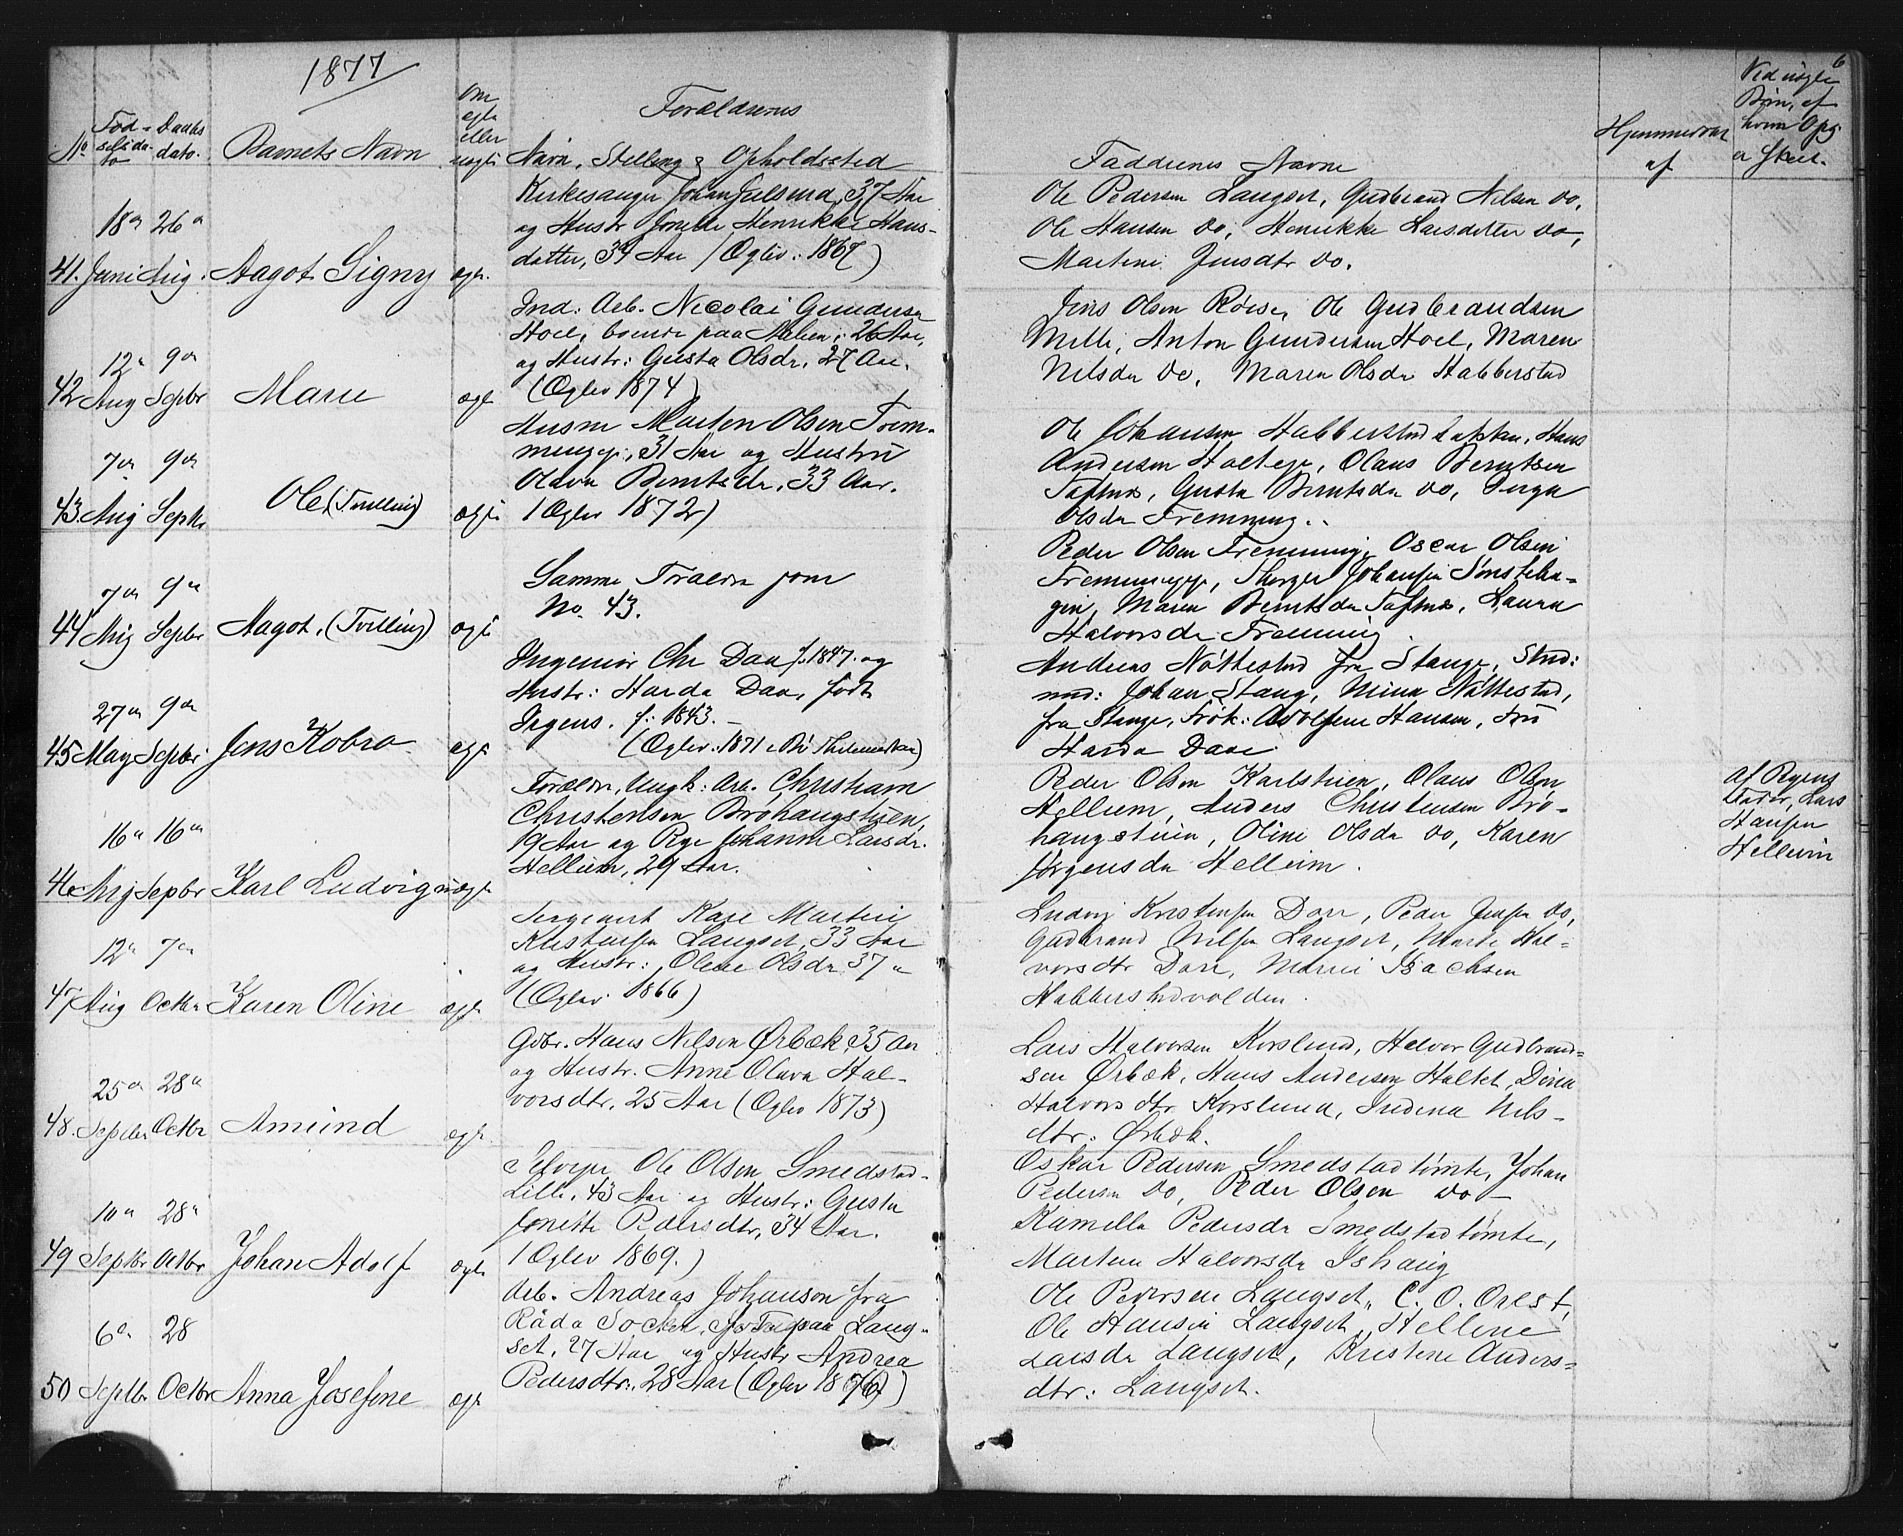 1877
No
Fød-
selsda-
to
Daabs
dato.
Barnets Navn
Om
egte
eller
uægte
Forældrenes
Navn, Stilling & Opholdssted
Faddrenes Navne
Hjemmedøbt
af
6
Ved uægte
Børn, af
hvem Opg.
er skeet.
41. 18de Juni 26de Aug. Aagot Signy ægte
Kirkesanger Johan Julsrud, 37 Aar
og Hustr Henrikke Hans-
datter, 34 Aar (Ægtev: 1867)
Ole Pedersen Langset, Gudbrand Nilsen do,
Ole Hansen do, Henrikke Larsdatter do,
Martine Jensdtr do.
42 12te Aug 9de Septbr Marie ægte
Ind: Arb. Nicolai Gundersen
Hoel, boende paa Melien, 26 Aar,
og Hustr: Gusta Olsdr, 27 Aar.
(Ægtev 1874)
Jens Olsen Röise, Ole Gudbrandsen
Melli, Anton Gundersen Hoel, Maren
Nilsdr do, Maren Olsdr Habberstad
43 7de Aug 9de Septbr Ole, (Tvilling) ægte
Husm Marten Olsen Frem-
mingeje, 31 Aar og Hustru
Olava Berntsdr, 33 Aar.
(Ægtev 1872)
Ole Johansen Habberstad, Hans
Andersen Holteje, Olaus Berntsen
Tafnæs, Gusta Berntsdr do,
Olsdr Fremming.
44 7de Aug 9de Septbr Aagot, (Tvilling) ægte
Samme Forældre som
No. 43.
Peder Olsen Fremming, Oscar Olsen
Fremmingeje, Johansen Sønsteha-
gen, Maren Berntsdr Tafnæs, Laura
Halvorsdr Fremming
45 27de May 9de Septbr Jens Kobro ægte
Ingeniør Chr Daae f. 1847. og
Hustr: Harda Daae, født
Irgens. f: 1843. -
(Ægtev: 1871 i Bø Thelemarken)
Andreas Nøttestad fra Stange, Stud:
med: Johan Stang, Mina Nøttestad,
fra Stange, Frøk: Adolfine Hansen, Frú
Harda Daae
46 16de Aug 16de Septbr Karl Ludvig uægte
Forældre, Ungk: Arb. Christian
Christensen Bröhaugstuen,
19 Aar og Pige Johanne Larsdr.
Hellum, 29 Aar.
Peder Olsen Karlstuen, Olaus Olsen
Hellum, Anders Christensen Brö-
haugstuen, Oline Olsdr do, Karen
Jørgensdr Hellum.
af Pigens
Fader, Lars
Hansen
Hellum
47 12te Aug 7de Octbr Karen Oline ægte
Sergeant Kare Martin
Kristensen Langset, 33 Aar
og Hustr: Olene Olsdr 37 "
(Ægtev 1866)
Ludvig Kristensen Dorr, Peder Jensen do,
Gudbrand Nilsen Langset, Marte Hal-
vorsdtr Dorr, Marie Isachsen
Habberstadvolden.
48. 25de Septbr 28de Octbr Amund ægte
Gdbr. Hans Nilsen Ørbæk, 35 Aar
og Hustr. Anne Olava Hal-
vorsdtr, 25 Aar (Ægtev 1873)
Lars Halvorsen Korslund, Halvor Gudbrand-
sen Ørbæk, Hans Andersen Holtet, Dorea
Halvorsdtr Korslund, Nils-
dtr: Ørbæk.
49 10de Septbr 28de Octbr Johan Adolf ægte
Selveier Ole Olsen Smedstad-
Lille, 43 Aar og Hustr: Gusta
Jonette Pedersdtr, 34 Aar.
(Ægtev 1869.)
Oskar Pedersen Smedstadtømte, Johan
Pedersen do, Peder Olsen do -
Kamilla Pedersdr Smedstadtømte,
Martea Halvorsdr Ishaug
50 6te Septbr 28 Octbr Anna Josefine ægte
Arb. Andreas Johanson fra
Råda Socken, paa Lang-
set, 27 Aar og Hustr Andrea
Pedersdtr., 28 Aar (Ægtev 1876)
Ole Pedersen Langset, C. O. Ørest,
Ole Hansen Langset, Hellene
Larsdr Langset, Kristine Anders-
dtr: Langset.